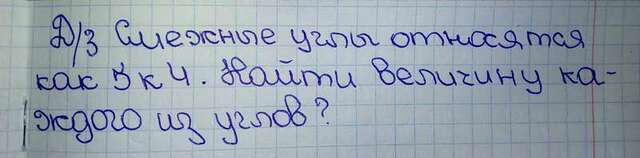 Д/з Смежные углы относятся
как 5 к 4. Найти величину ка-
ждого из углов?